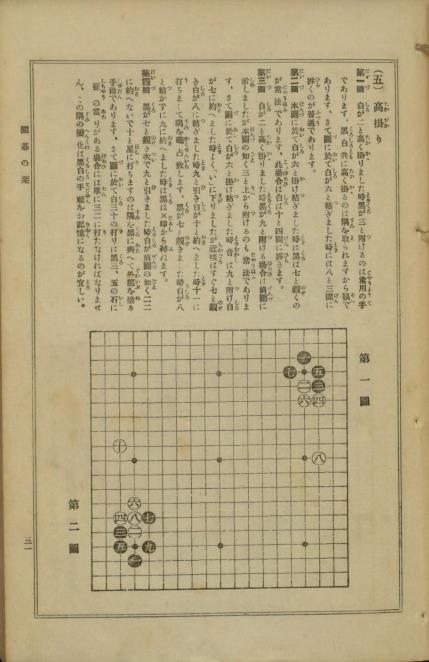 （五）高掛り
第一圖　白が二と高く掛りました時黑が三と附けるのは常用の手
であります。黑白共に高く掛るのは隅を取られますから損で
あります。さて圖に於て白が六と粘ぎました時には八と三間に
拆くのが普通であります。
第二圖　本圖に於て白が六と掛け粘ぎました時は黑は七と覗くの
が常法であります。此場合は白は十と四間に拆きます。
第三圖　白が二と高く掛りました時黑が九と附ける場合は前圖に
示しましたが本圖の如く三と上から附けるのも常法でありま
す。さて圖に於て白が六と掛け粘ぎました時、昔は九と附け白
が七に約へました時よく、いに下りましたが近頃はすぐ七と覗
き白が八に粘ぎました時九と引き白が十と約へました時十一に
打ちまして隅を占致します。黑が七と覗きました時白が八
と粘がずに九に約へました時は黑は×印から締れます。
第四圖　黑が七と覗き次で九と引きました時白が前圖の如く二二
に約へないで十と星に打ちますのは隅を黑に與へて外勢を塗る
手段であります。さて圖に於て白三十の打りは黑三、五の石に
征の當りがある場合には單に三二に打たなければなりませ
ん。この隅の變化は黑白の手順を御記憶になるのが宜しい。
圍碁の栞
三一
第一圖
一
七
五
二
三
六
四
八
第二圖
十
六
四
八
七
三
二
五
九
一